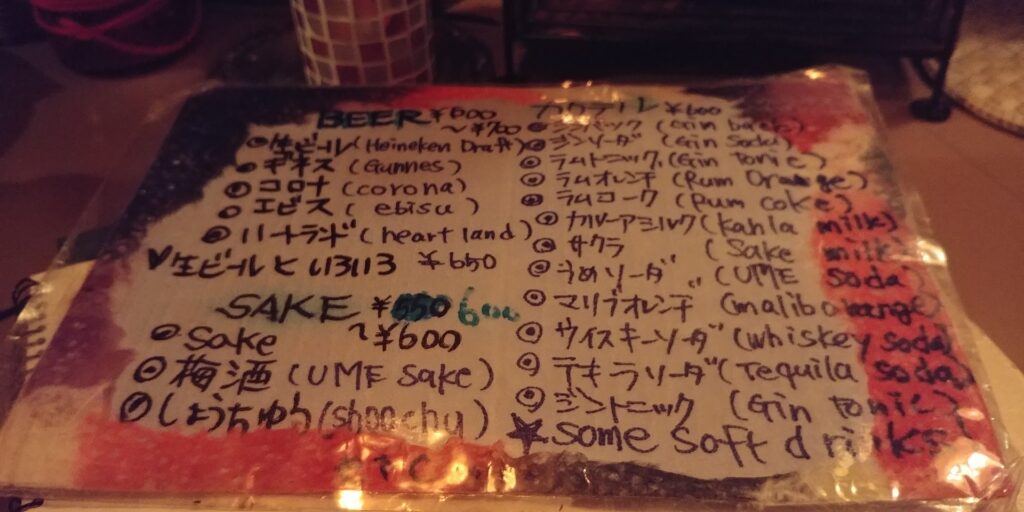 BEER ¥600
~¥700
生ビール (Heineken Draft)
ギネス (Gunnes)
コロナ (corona)
エビス (ebisu)
ハートランド (heart land)
生ビールといろいろ ¥650
SAKE ¥550 600
~¥600
Sake
梅酒 (UME Sake)
しょうちゅう (shoochu)
ETC
カクテル ¥600
ジンバック (Gin back)
ジンソーダ (Gin Soda)
ラムトニック (Gin Tonic)
ラムオレンヂ (Rum Orange)
ラムコーク (Rum coke)
カルーアミルク (Kahla milk)
サクラ (Sake milk)
うめソーダ (UME Soda)
マリブオレンヂ (malib orange)
ウイスキーソーダ (whiskey soda)
テキラソーダ (Tequila soda)
ジントニック (Gin tonic)
some soft drinks!